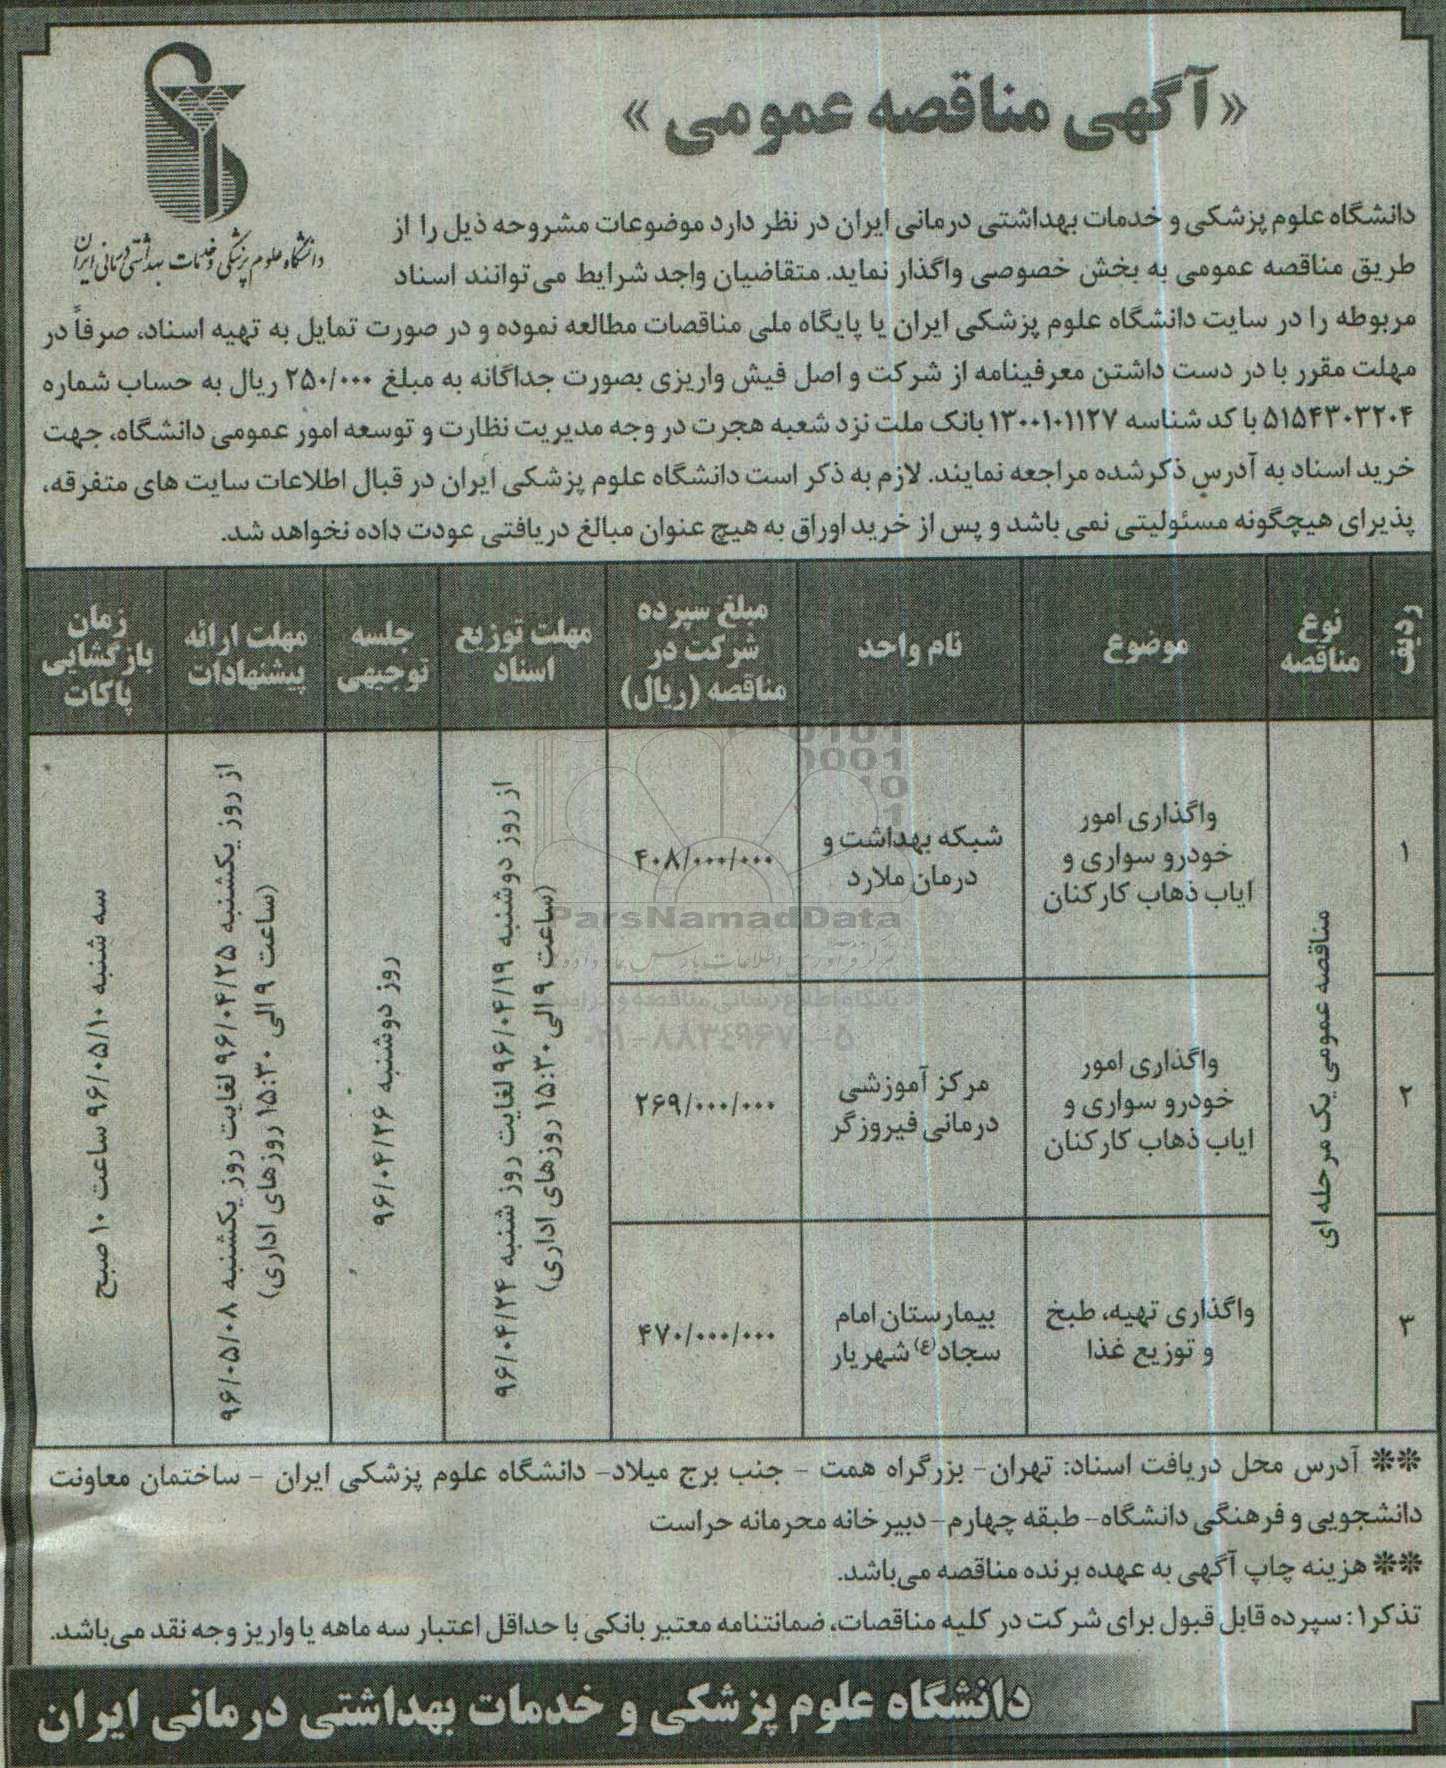 «آگهی مناقصه عمومی»
دانشگاه علوم پزشکی و خدمات بهداشتی درمانی ایران
دانشگاه علوم پزشکی و خدمات بهداشتی درمانی ایران در نظر دارد موضوعات مشروحه ذیل را از
طریق مناقصه عمومی به بخش خصوصی واگذار نماید. متقاضیان واجد شرایط می‌توانند اسناد
مربوطه را در سایت دانشگاه علوم پزشکی ایران یا پایگاه ملی مناقصات مطالعه نموده و در صورت تمایل به تهیه اسناد، صرفاً در
مهلت مقرر با در دست داشتن معرفینامه از شرکت و اصل فیش واریزی بصورت جداگانه به مبلغ ۲۵۰/۰۰۰ ریال به حساب شماره
۵۱۵۴۳۰۳۲۰۴ با کد شناسه ۱۳۰۰۱۰۱۱۲۷ بانک ملت نزد شعبه هجرت در وجه مدیریت نظارت و توسعه امور عمومی دانشگاه، جهت
خرید اسناد به آدرس ذکرشده مراجعه نمایند. لازم به ذکر است دانشگاه علوم پزشکی ایران در قبال اطلاعات سایت های متفرقه،
پذیرای هیچگونه مسئولیتی نمی باشد و پس از خرید اوراق به هیچ عنوان مبالغ دریافتی عودت داده نخواهد شد.
ردیف
نوع
مناقصه
موضوع
نام واحد
مبلغ سپرده
شرکت در
مناقصه (ریال)
مهلت توزیع
اسناد
جلسه
توجیهی
مهلت ارائه
پیشنهادات
زمان
بازگشایی
پاکات
۱
مناقصه عمومی یک مرحله ای
واگذاری امور
خودرو سواری و
ایاب ذهاب کارکنان
شبکه بهداشت و
درمان ملارد
۴۰۸/۰۰۰/۰۰۰
از روز دوشنبه ۹۶/۰۴/۱۹ لغایت روز شنبه ۹۶/۰۴/۲۴
(ساعت ۹ الی ۱۵:۳۰ روزهای اداری)
روز دوشنبه ۹۶/۰۴/۲۶
از روز یکشنبه ۹۶/۰۴/۲۵ لغایت روز یکشنبه ۹۶/۰۵/۰۸
(ساعت ۹ الی ۱۵:۳۰ روزهای اداری)
سه شنبه ۹۶/۰۵/۱۰ ساعت ۱۰ صبح
۲
واگذاری امور
خودرو سواری و
ایاب ذهاب کارکنان
مرکز آموزشی
درمانی فیروزگر
۲۶۹/۰۰۰/۰۰۰
۳
واگذاری تهیه، طبخ
و توزیع غذا
بیمارستان امام
سجاد(ع) شهریار
۴۷۰/۰۰۰/۰۰۰
ParsNamadData
۰۲۱-۸۸۳٤۹۶۷۰-۵
** آدرس محل دریافت اسناد: تهران- بزرگراه همت - جنب برج میلاد- دانشگاه علوم پزشکی ایران - ساختمان معاونت
دانشجویی و فرهنگی دانشگاه- طبقه چهارم- دبیرخانه محرمانه حراست
** هزینه چاپ آگهی به عهده برنده مناقصه می‌باشد.
تذکر۱: سپرده قابل قبول برای شرکت در کلیه مناقصات، ضمانتنامه معتبر بانکی با حداقل اعتبار سه ماهه یا واریز وجه نقد می‌باشد.
دانشگاه علوم پزشکی و خدمات بهداشتی درمانی ایران